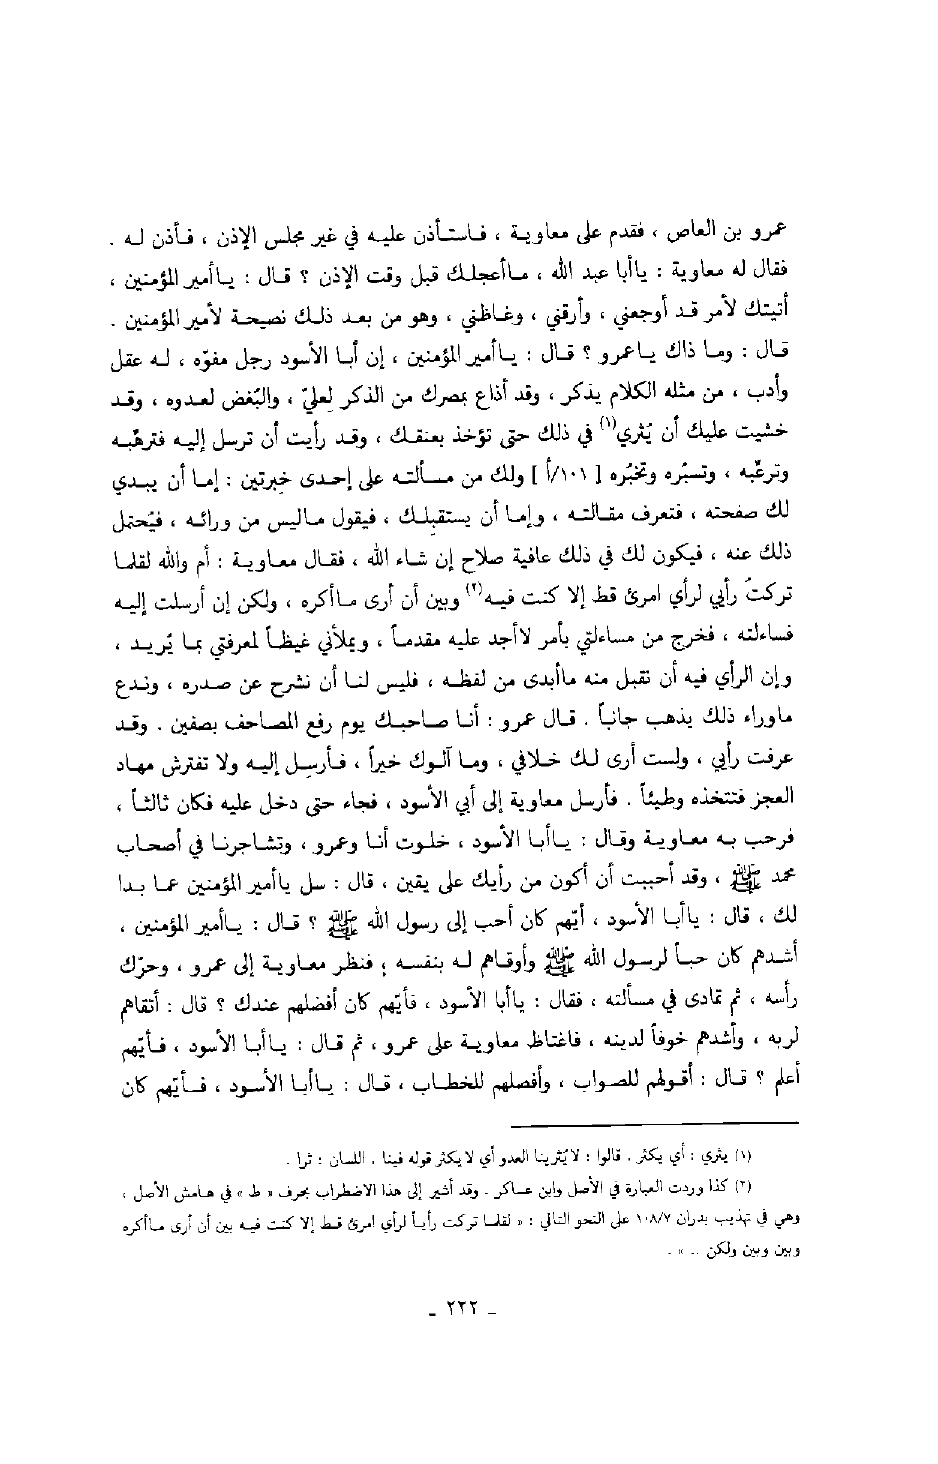 عمرو بن العاص ، فقدم على معاوية ، فاستأذن عليه في غير مجلس الإذن ، فأذن له .
فقال له معاوية : ياأبا عبد الله ، ماأعجلك قبل وقت الإذن ؟ قال : ياأمير المؤمنين ،
أتيتك لأمر قد أوجعني ، وأرقني ، وغاظني ، وهو من بعد ذلك نصيحة لأمير المؤمنين .
قال : وما ذاك ياعمرو ؟ قال : ياأمير المؤمنين ، إن أبا الأسود رجل مفوّه ، له عقل
وأدب ، من مثله الكلام يذكر ، وقد أذاع بمصرك من الذكر لعليّ ، والبُغض لعدوه ، وقد
خشيت عليك أن يُثري(١) في ذلك حتى تؤخذ بعنقك ، وقد رأيت أن ترسل إليه فترهّبه
وترعّبه ، وتسبُره وتخبُره [ ١٠١/أ ] ولك من مسألته على إحدى خبرتين : إما أن يبدي
لك صفحته ، فتعرف مقالته ، وإما أن يستقبلك ، فيقول ماليس من ورائه ، فيُحتمل
ذلك عنه ، فيكون لك في ذلك عافية صلاح إن شاء الله ، فقال معاوية : أم والله لقلما
تركتُ رأيي لرأي امرئ قط إلا كنت فيه(٢) وبين أن أرى ماأكره ، ولكن إن أرسلت إليه
فساءلته ، فخرج من مساءلتي بأمر لاأجد عليه مقدماً ، ويملأني غيظاً لمعرفتي بما يُريد ،
وإن الرأي فيه أن نقبل منه ماأبدى من لفظه ، فليس لنا أن نشرح عن صدره ، وندع
ماوراء ذلك يذهب جانباً . قال عمرو : أنا صاحبك يوم رفع المصاحف بصفين . وقد
عرفت رأيي ، ولست أرى لك خلافي ، وما آلوك خيراً ، فأرسل إليه ولا تفترش مهاد
العجز فتتخذه وطيئاً . فأرسل معاوية إلى أبي الأسود ، فجاء حتى دخل عليه فكان ثالثاً ،
فرحب به معاوية وقال : ياأبا الأسود ، خلوت أنا وعمرو ، وتشاجرنا في أصحاب
محمد ﷺ ، وقد أحببت أن أكون من رأيك على يقين ، قال : سل ياأمير المؤمنين عما بدا
لك ، قال : ياأبا الأسود ، أيّهم كان أحب إلى رسول الله ﷺ ؟ قال : ياأمير المؤمنين ،
أشدهم كان حباً لرسول الله ﷺ وأوقاهم له بنفسه ؛ فنظر معاوية إلى عمرو ، وحرّك
رأسه ، ثم تمادى في مسألته ، فقال : ياأبا الأسود ، فأيّهم كان أفضلهم عندك ؟ قال : أتقاهم
لربه ، وأشدهم خوفاً لدينه ، فاغتاظ معاوية على عمرو ، ثم قال : ياأبا الأسود ، فأيّهم
أعلم ؟ قال : أقولهم للصواب ، وأفصلهم للخطاب ، قال : ياأبا الأسود ، فأيّهم كان
(١) يثري : أي يكثر . قالوا : لايُثرينا العدو أي لايكثر قوله فينا . اللسان : ثرا .
(٢) كذا وردت العبارة في الأصل وابن عساكر . وقد أشير إلى هذا الاضطراب بحرف « ط » في هامش الأصل ،
وهي في تهذيب بدران ١٠٨/٧ على النحو التالي : « لقلما تركت رأياً لرأي امرئ قط إلا كنت فيه بين أن أرى ماأكره
وبين وبين ولكن .. » .
ـ ٢٢٢ ـ